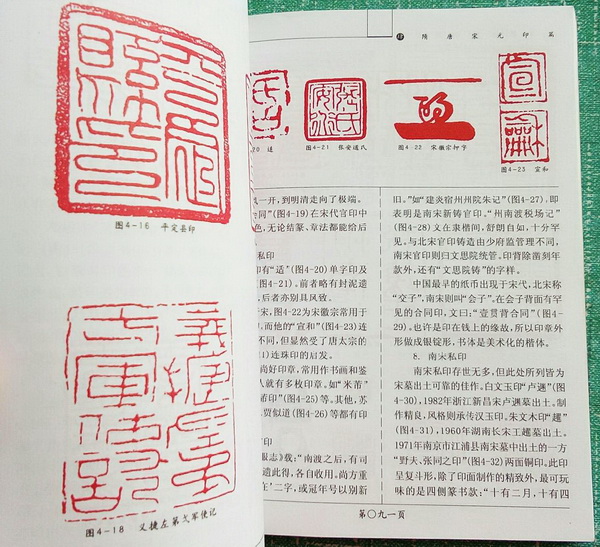 图4-16 平定县印
图4-18 义捷左第弍军使记
肆 隋唐宋元印篇
20 适
图4-21 张安道氏
图4-22 宋徽宗押字
图4-23 宣和
一开，到明清走向了极端。
合同”（图4-19）在宋代官印中
色，无论结篆、章法都能给后
私印
有“适”（图4-20）单字印及
图4-21）。前者略有封泥遗
，后者亦别具风致。
宋，图4-22为宋徽宗常用于
，而他的“宣和”（图4-23）连
不同，但显然受了唐太宗的
1）连珠印的启发。
尚好印章，常用作书画和鉴
人就有多枚印章。如“米芾”
芾印”（图4-25）等。其他，苏
贾似道（图4-26）等都有印
印
服志》载：“南渡之后，有司
遗此得，各自收用。尚方重
在‘二字，或冠年号以别新
旧。”如“建炎宿州州院朱记”（图4-27），即
表明是南宋新铸官印。“州南渡税场记”
（图4-28）文在隶楷间，舒朗自如，十分罕
见。与北宋官印铸造由少府监管理不同，
南宋官印则归文思院统管。印背除凿刻年
款外，还有“文思院铸”的字样。
中国最早的纸币出现于宋代，北宋称
“交子”，南宋则叫“会子”。在会子背面有罕
见的合同印，文曰：“壹贯背合同”（图4-
29）。也许是印在钱上的缘故，所以印章外
形做成银锭形，书体是美术化的楷体。
8. 南宋私印
南宋私印存世无多，但此处所列皆为
宋墓出土可靠的佳作。白文玉印“卢遇”（图
4-30），1982年浙江新昌宋卢遇墓出土。制
作精良，风格则承传汉玉印。朱文木印“趯”
（图4-31），1960年湖南长宋王趯墓出土。
1971年南京市江浦县南宋墓中出土的一方
“野夫、张同之印”（图4-32）两面铜印。此印
呈复斗形，除了印面制作的精致外，最可玩
味的是四侧篆书款：“十有二月，十有四
第〇九一页